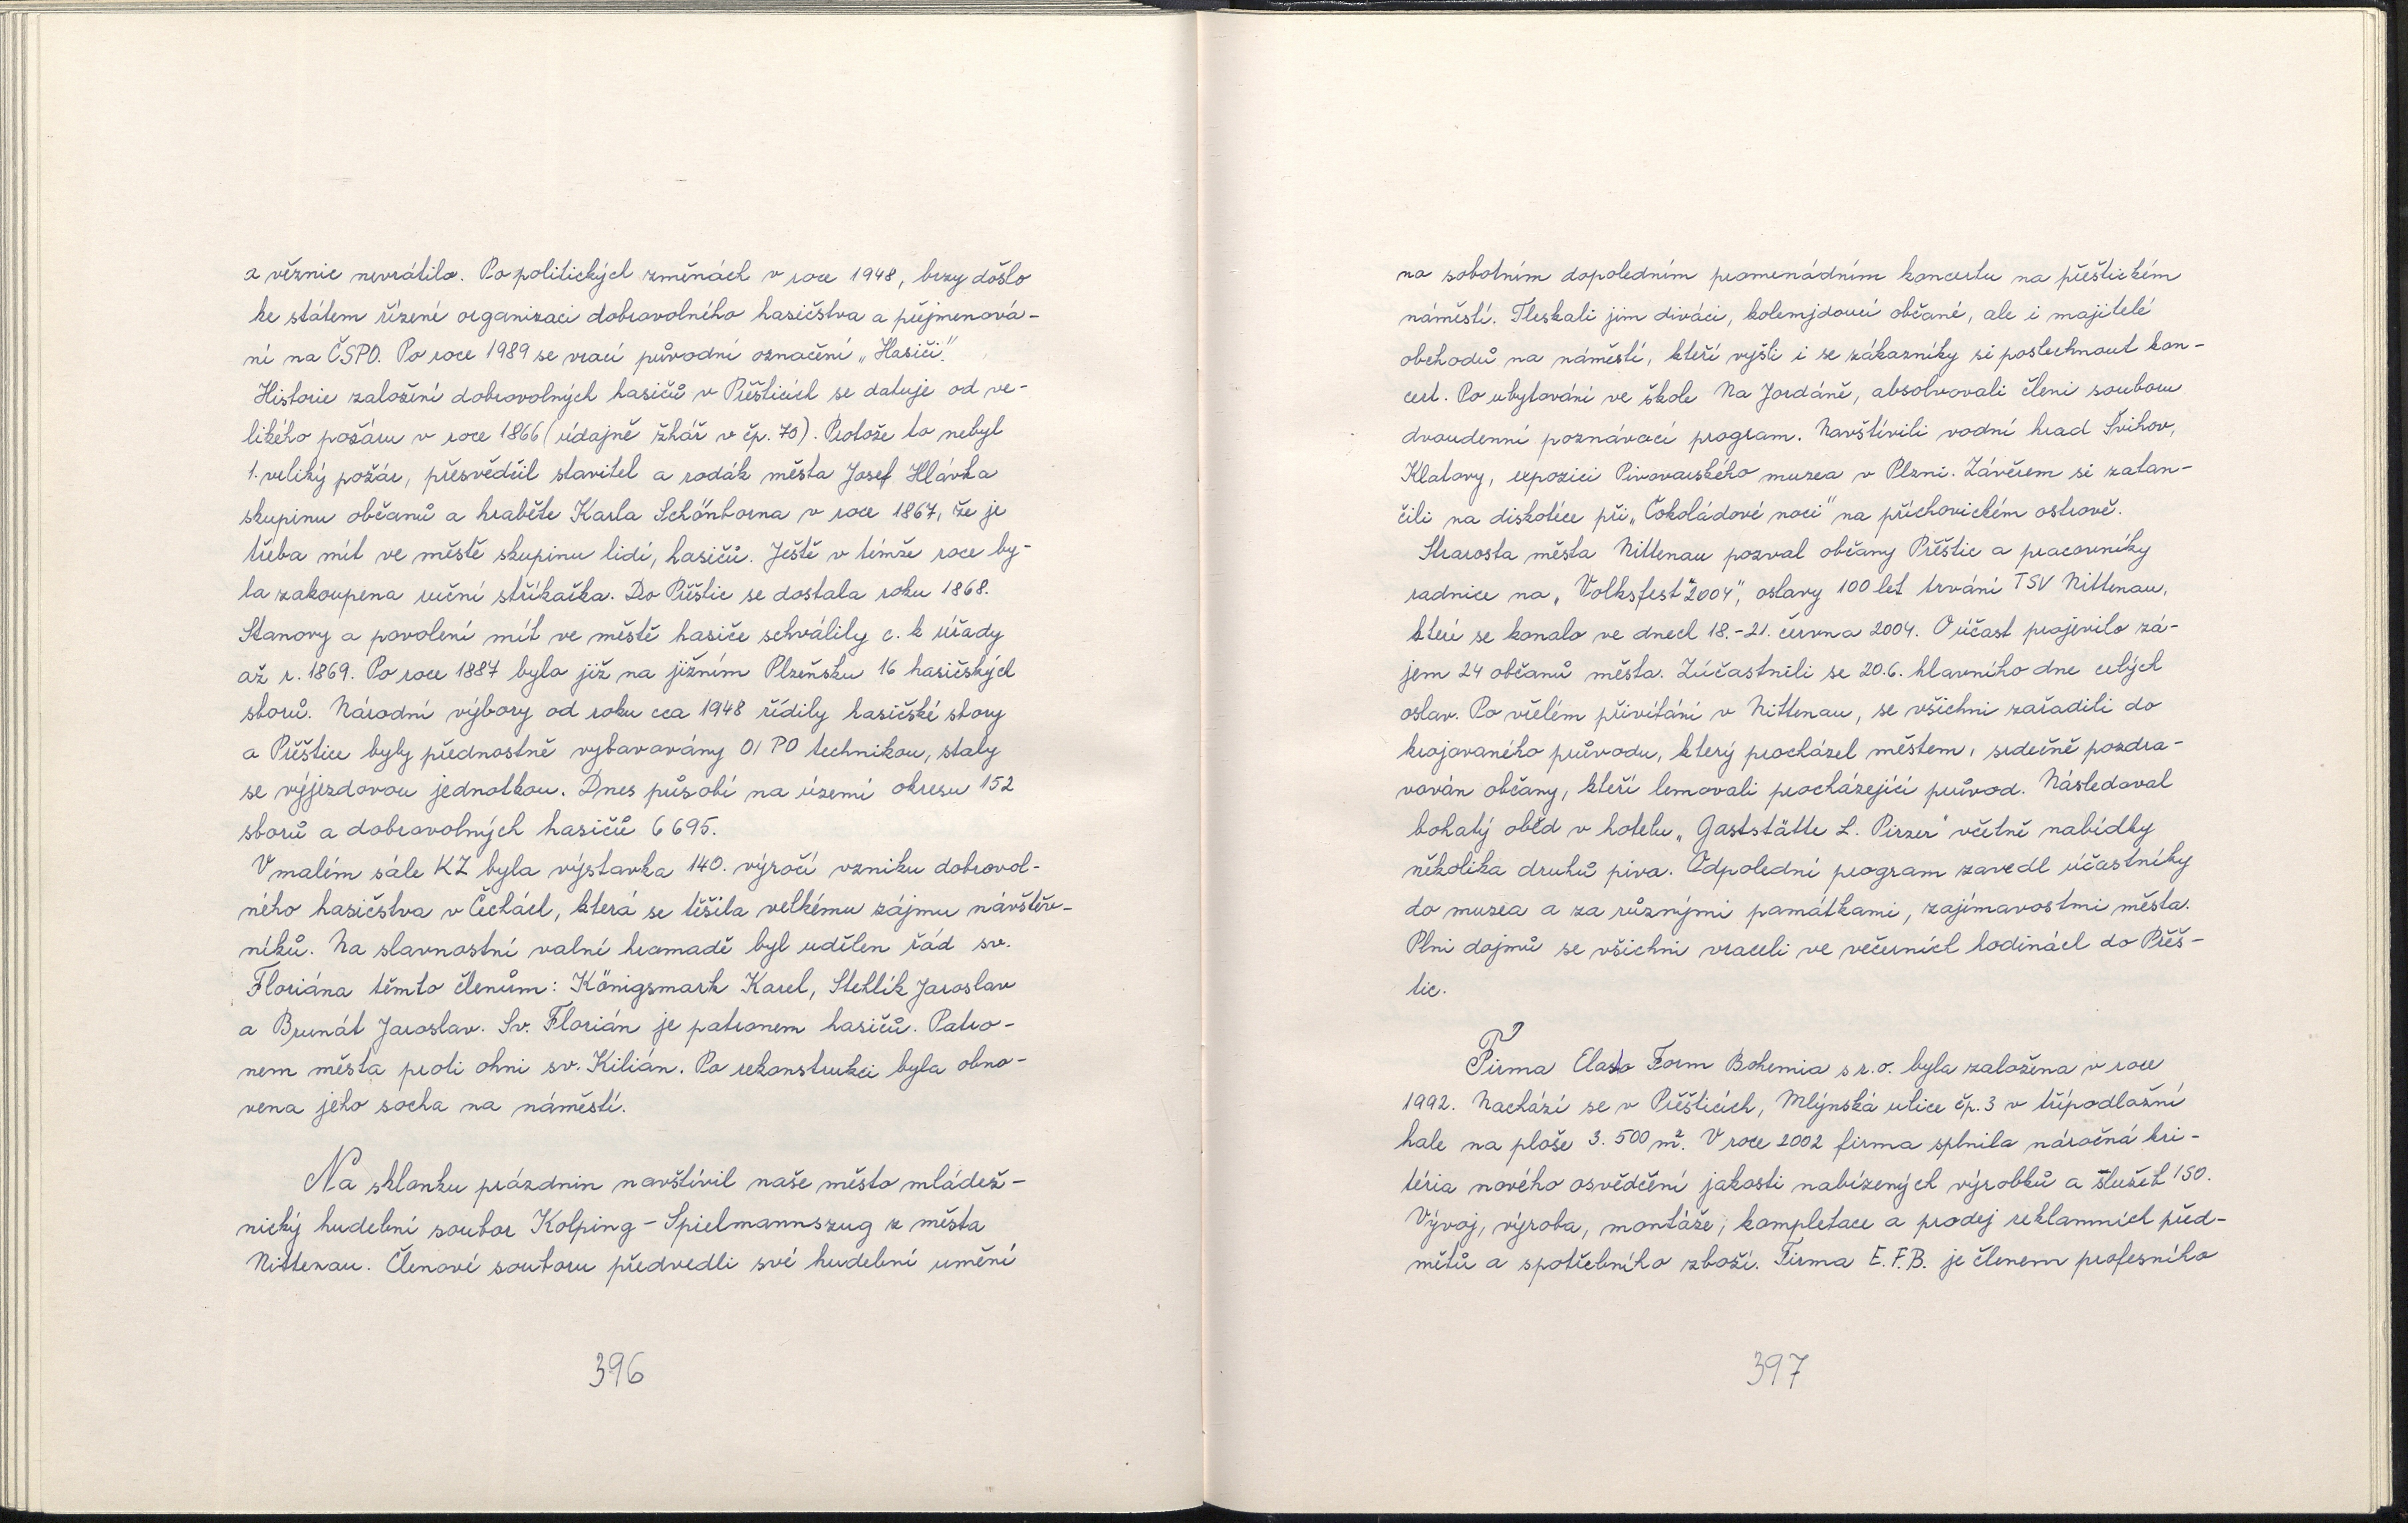 z věznic nevrátilo. Po politických změnách v roce 1948, brzy došlo
ke státem řízené organizaci dobrovolného hasičstva a přejmenová-
ní na ČSPO. Po roce 1989 se vrací původní označení „Hasiči".
Historie založení dobrovolných hasičů v Přešticích se datuje od ve-
likého požáru v roce 1866 (údajně žhář v čp. 70). Protože to nebyl
1. veliký požár, přesvědčil stavitel a rodák města Josef Hlávka
skupinu občanů a hraběte Karla Schönborna v roce 1867, že je
třeba mít ve městě skupinu lidí, hasičů. Ještě v témže roce by-
la zakoupena ruční stříkačka. Do Přeštic se dostala roku 1868.
Stanovy a povolení mít ve městě hasiče schválily c. k úřady
až r. 1869. Po roce 1887 bylo již na jižním Plzeňsku 16 hasičských
sborů. Národní výbory od roku cca 1948 řídily hasičské sbory
a Přeštice byly přednostně vybavovány OI PO technikou, staly
se výjezdovou jednotkou. Dnes působí na území okresu 152
sborů a dobrovolných hasičů 6 695.
V malém sále KZ byla výstavka 140. výročí vzniku dobrovol-
ného hasičstva v Čechách, která se těšila velkému zájmu návštěv-
níků. Na slavnostní valné hromadě byl udělen řád sv.
Floriána těmto členům: Königsmark Karel, Stehlík Jaroslav
a Brunát Jaroslav. Sv. Florián je patronem hasičů. Patro-
nem města proti ohni sv. Kilián. Po rekonstrukci byla obno-
vena jeho socha na náměstí.
Na sklonku prázdnin navštívil naše město mládež-
nický hudební soubor Kolping - Spielmannszug z města
Nittenau. Členové souboru předvedli své hudební umění
396
na sobotním dopoledním promenádním koncertu na přeštickém
náměstí. Tleskali jim diváci, kolemjdoucí občané, ale i majitelé
obchodů na náměstí, kteří vyšli i se zákazníky si poslechnout kon-
cert. Po ubytování ve škole Na Jordáně, absolvovali členi souboru
dvoudenní poznávací program. Navštívili vodní hrad Švihov,
Klatovy, expozici Pivovarského muzea v Plzni. Závěrem si zatan-
čili na diskotéce při „Čokoládové noci" na příchovickém ostrově.
Starosta města Nittenau pozval občany Přeštic a pracovníky
radnice na „Volksfest 2004", oslavy 100 let trvání TSV Nittenau,
které se konalo ve dnech 18.-21. června 2004. O účast projevilo zá-
jem 24 občanů města. Zúčastnili se 20.6. hlavního dne celých
oslav. Po vřelém přivítání v Nittenau, se všichni zařadili do
krojovaného průvodu, který procházel městem, srdečně pozdra-
vován občany, kteří lemovali procházející průvod. Následoval
bohatý oběd v hotelu „Gaststätte L. Pirzer" včetně nabídky
několika druhů piva. Odpolední program zavedl účastníky
do muzea a za různými památkami, zajímavostmi města.
Plni dojmů se všichni vraceli ve večerních hodinách do Přeš-
tic.
Firma Elasto Form Bohemia s r.o. byla založena v roce
1992. Nachází se v Přešticích, Mlýnská ulice čp. 3 v třípodlažní
hale na ploše 3. 500 m². V roce 2002 firma splnila náročná kri-
téria nového osvědčení jakosti nabízených výrobků a služeb ISO.
Vývoj, výroba, montáže, kompletace a prodej reklamních před-
mětů a spotřebního zboží. Firma E.F.B. je členem profesního
397